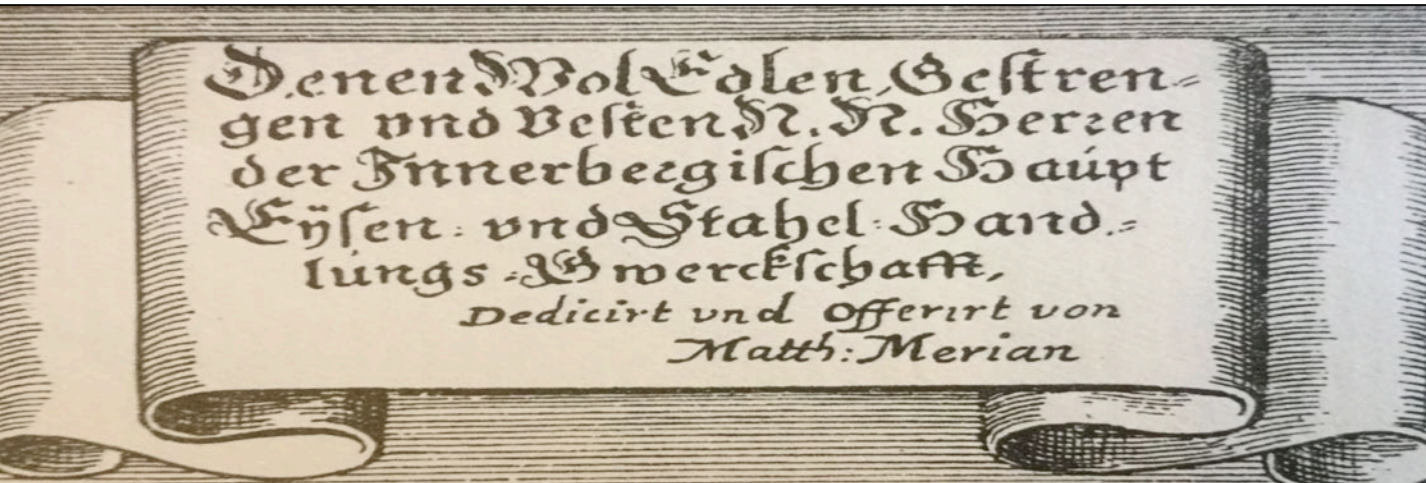 Denen Wol Edlen, Gestren⸗
gen vnd Vesten N. N. Herren
der Innerbergischen Haúpt
Eÿsen: vnd Stahel: Hand⸗
lúngs⸗Gwerckschafft,
Dedicirt vnd Offerirt von
Matth: Merian